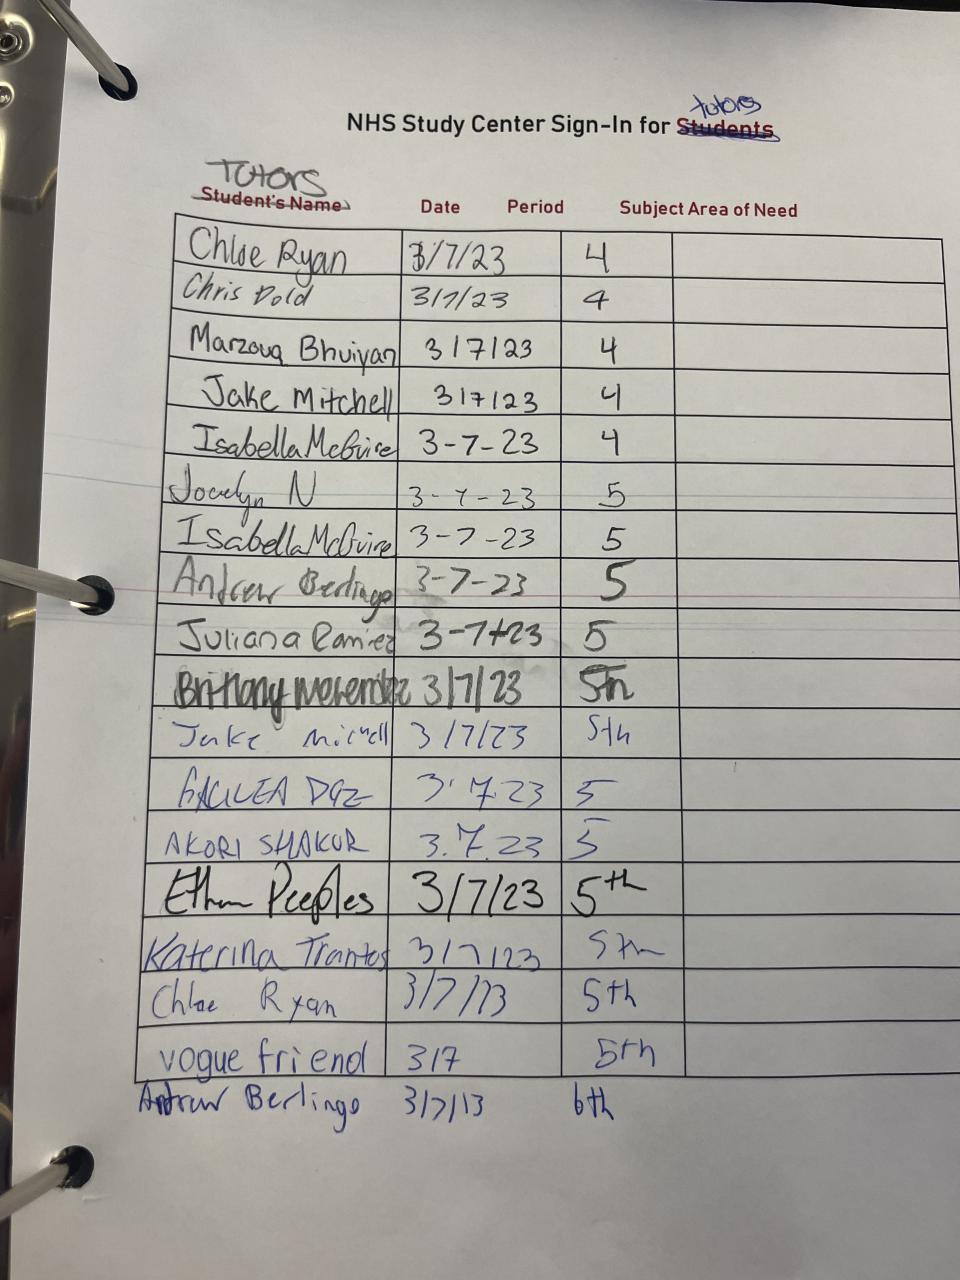 tutors
NHS Study Center Sign-In for Students
TUTORS
Student's Name Date Period Subject Area of Need
Chloe Ryan 3/7/23 4
Chris Dold 3/7/23 4
Marzouq Bhuiyan 3/7/23 4
Jake Mitchell 3/7/23 4
Isabella McGuire 3-7-23 4
Jocelyn N 3-7-23 5
Isabella McGuire 3-7-23 5
Andrew Berlingo 3-7-23 5
Juliana Ramirez 3-7-23 5
Brittany 3/7/23 5th
Jake 3/7/23 5th
GALILEA 3.7.23 5
AKORI SHAKUR 3.7.23 5
Ethan Peeples 3/7/23 5th
Katerina Trantos 3/7/23 5th
Chloe Ryan 3/7/23 5th
vogue friend 3/7 5th
Andrew Berlingo 3/7/13 6th